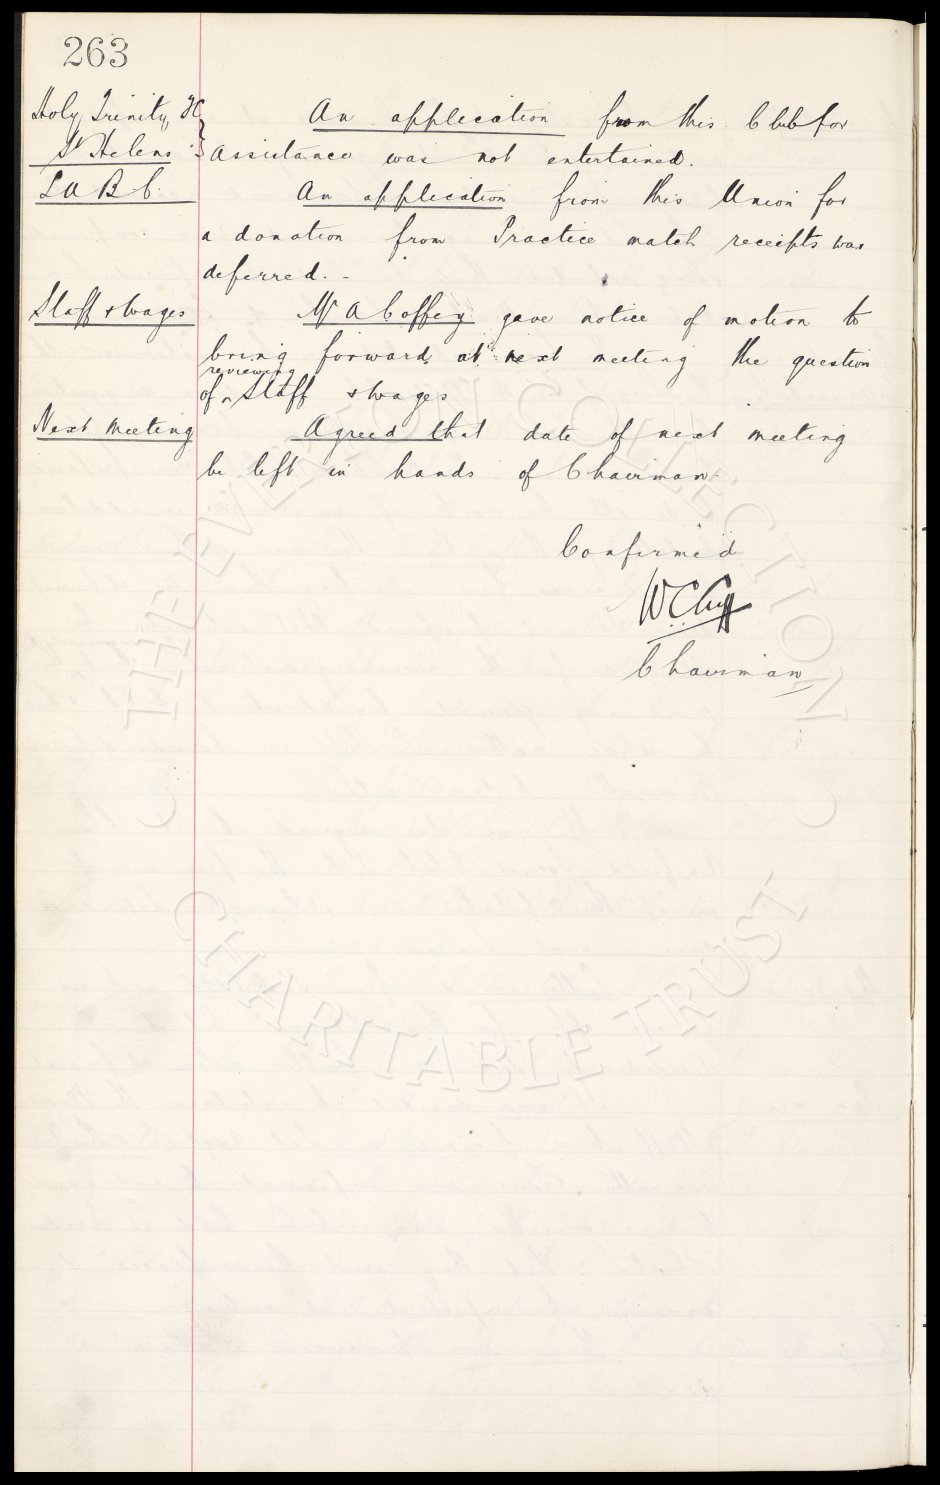 263
Holy Trinity FC
St Helens
An application from this Club for
assistance was not entertained.
L U B C.
An application from this Union for
a donation from Practice match receipts was
deferred. -
Staff & Wages
Mr A Coffey gave notice of motion to
bring forward at next meeting the question
of reviewing Staff & Wages
Next Meeting
Agreed that date of next meeting
be left in hands of Chairman
Confirmed
W C Cuff
Chairman
THE EVERTON COLLECTION
CHARITABLE TRUST